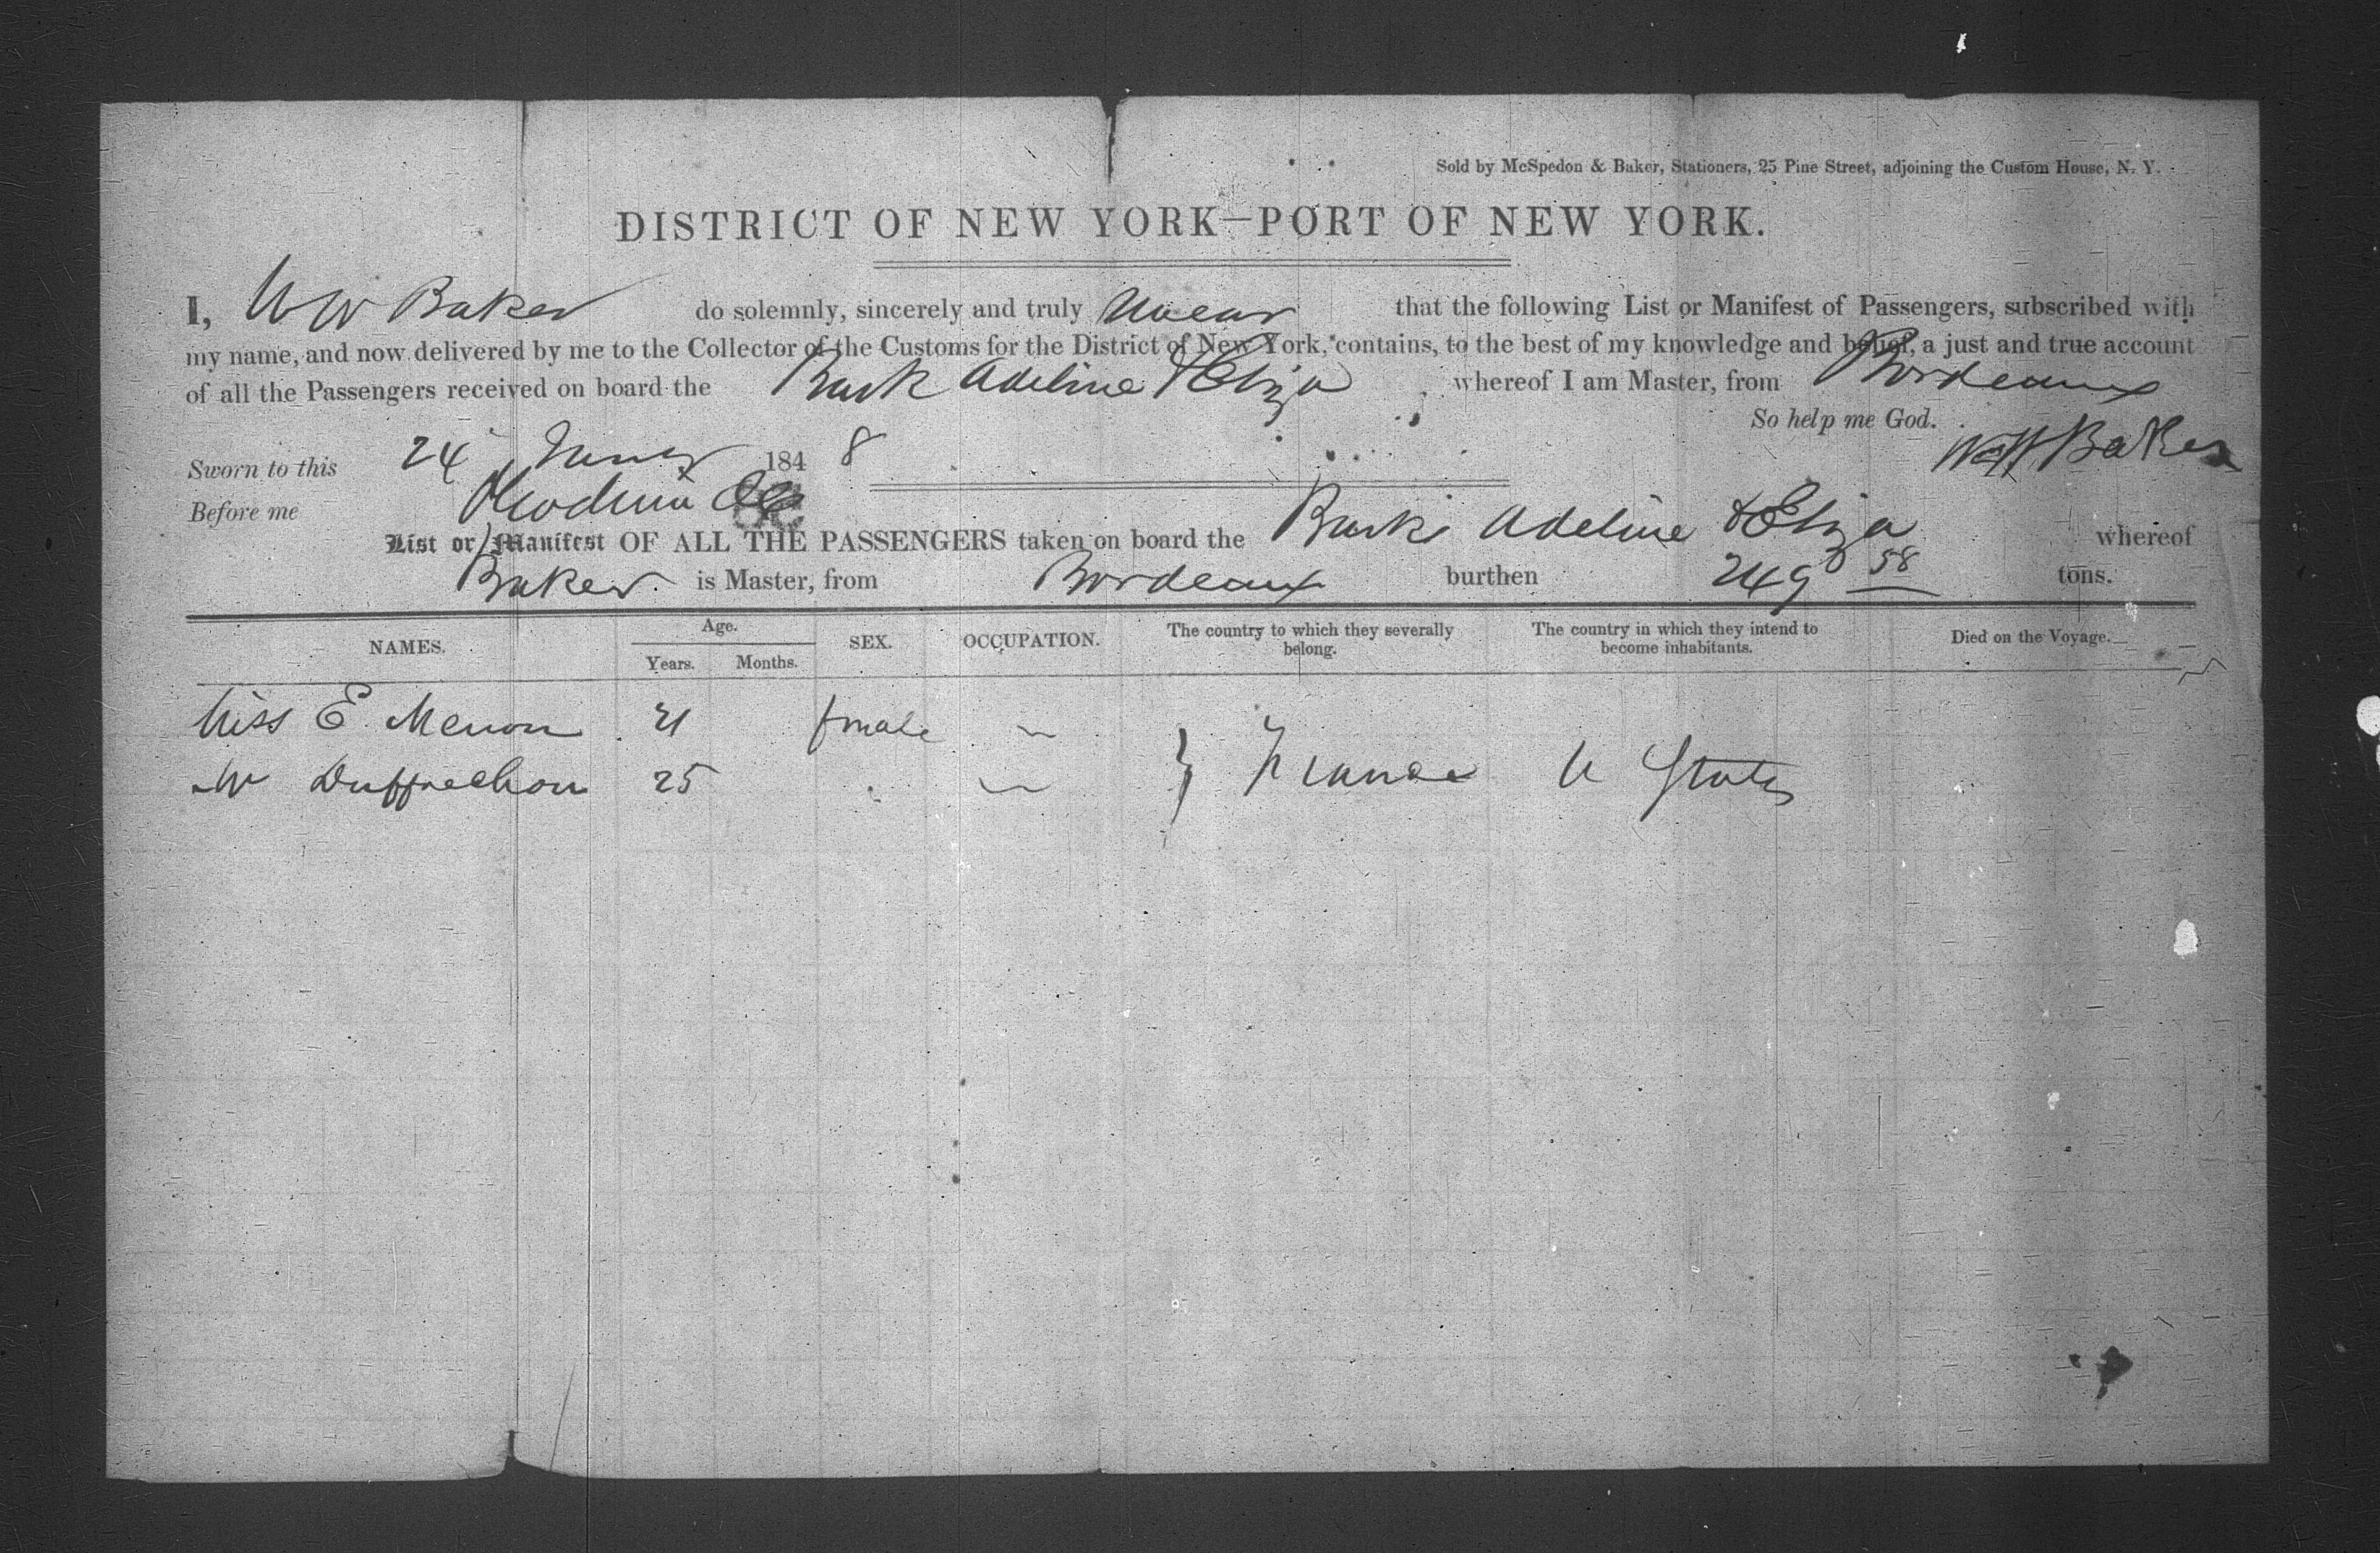 Sold by McSpedon & Baker, Stationers, 25 Pine Street, adjoining the Custom House, N. Y.
DISTRICT OF NEW YORK—PORT OF NEW YORK.
I, W W Baker do solemnly, sincerely and truly swear that the following List or Manifest of Passengers, subscribed with
my name, and now delivered by me to the Collector of the Customs for the District of New York, contains, to the best of my knowledge and belief, a just and true account
of all the Passengers received on board the Bark Adeline & Eliza whereof I am Master, from Bordeaux
So help me God.
W W Baker
Sworn to this 24 184 8
Before me
List or Manifest OF ALL THE PASSENGERS taken on board the Bark Adeline & Eliza whereof
Baker is Master, from Bordeaux burthen 249 58 tons.
NAMES. Age. Years. Months. SEX. OCCUPATION. The country to which they severally belong. The country in which they intend to become inhabitants. Died on the Voyage.
Miss E. Menon 21 female
25
} France U States